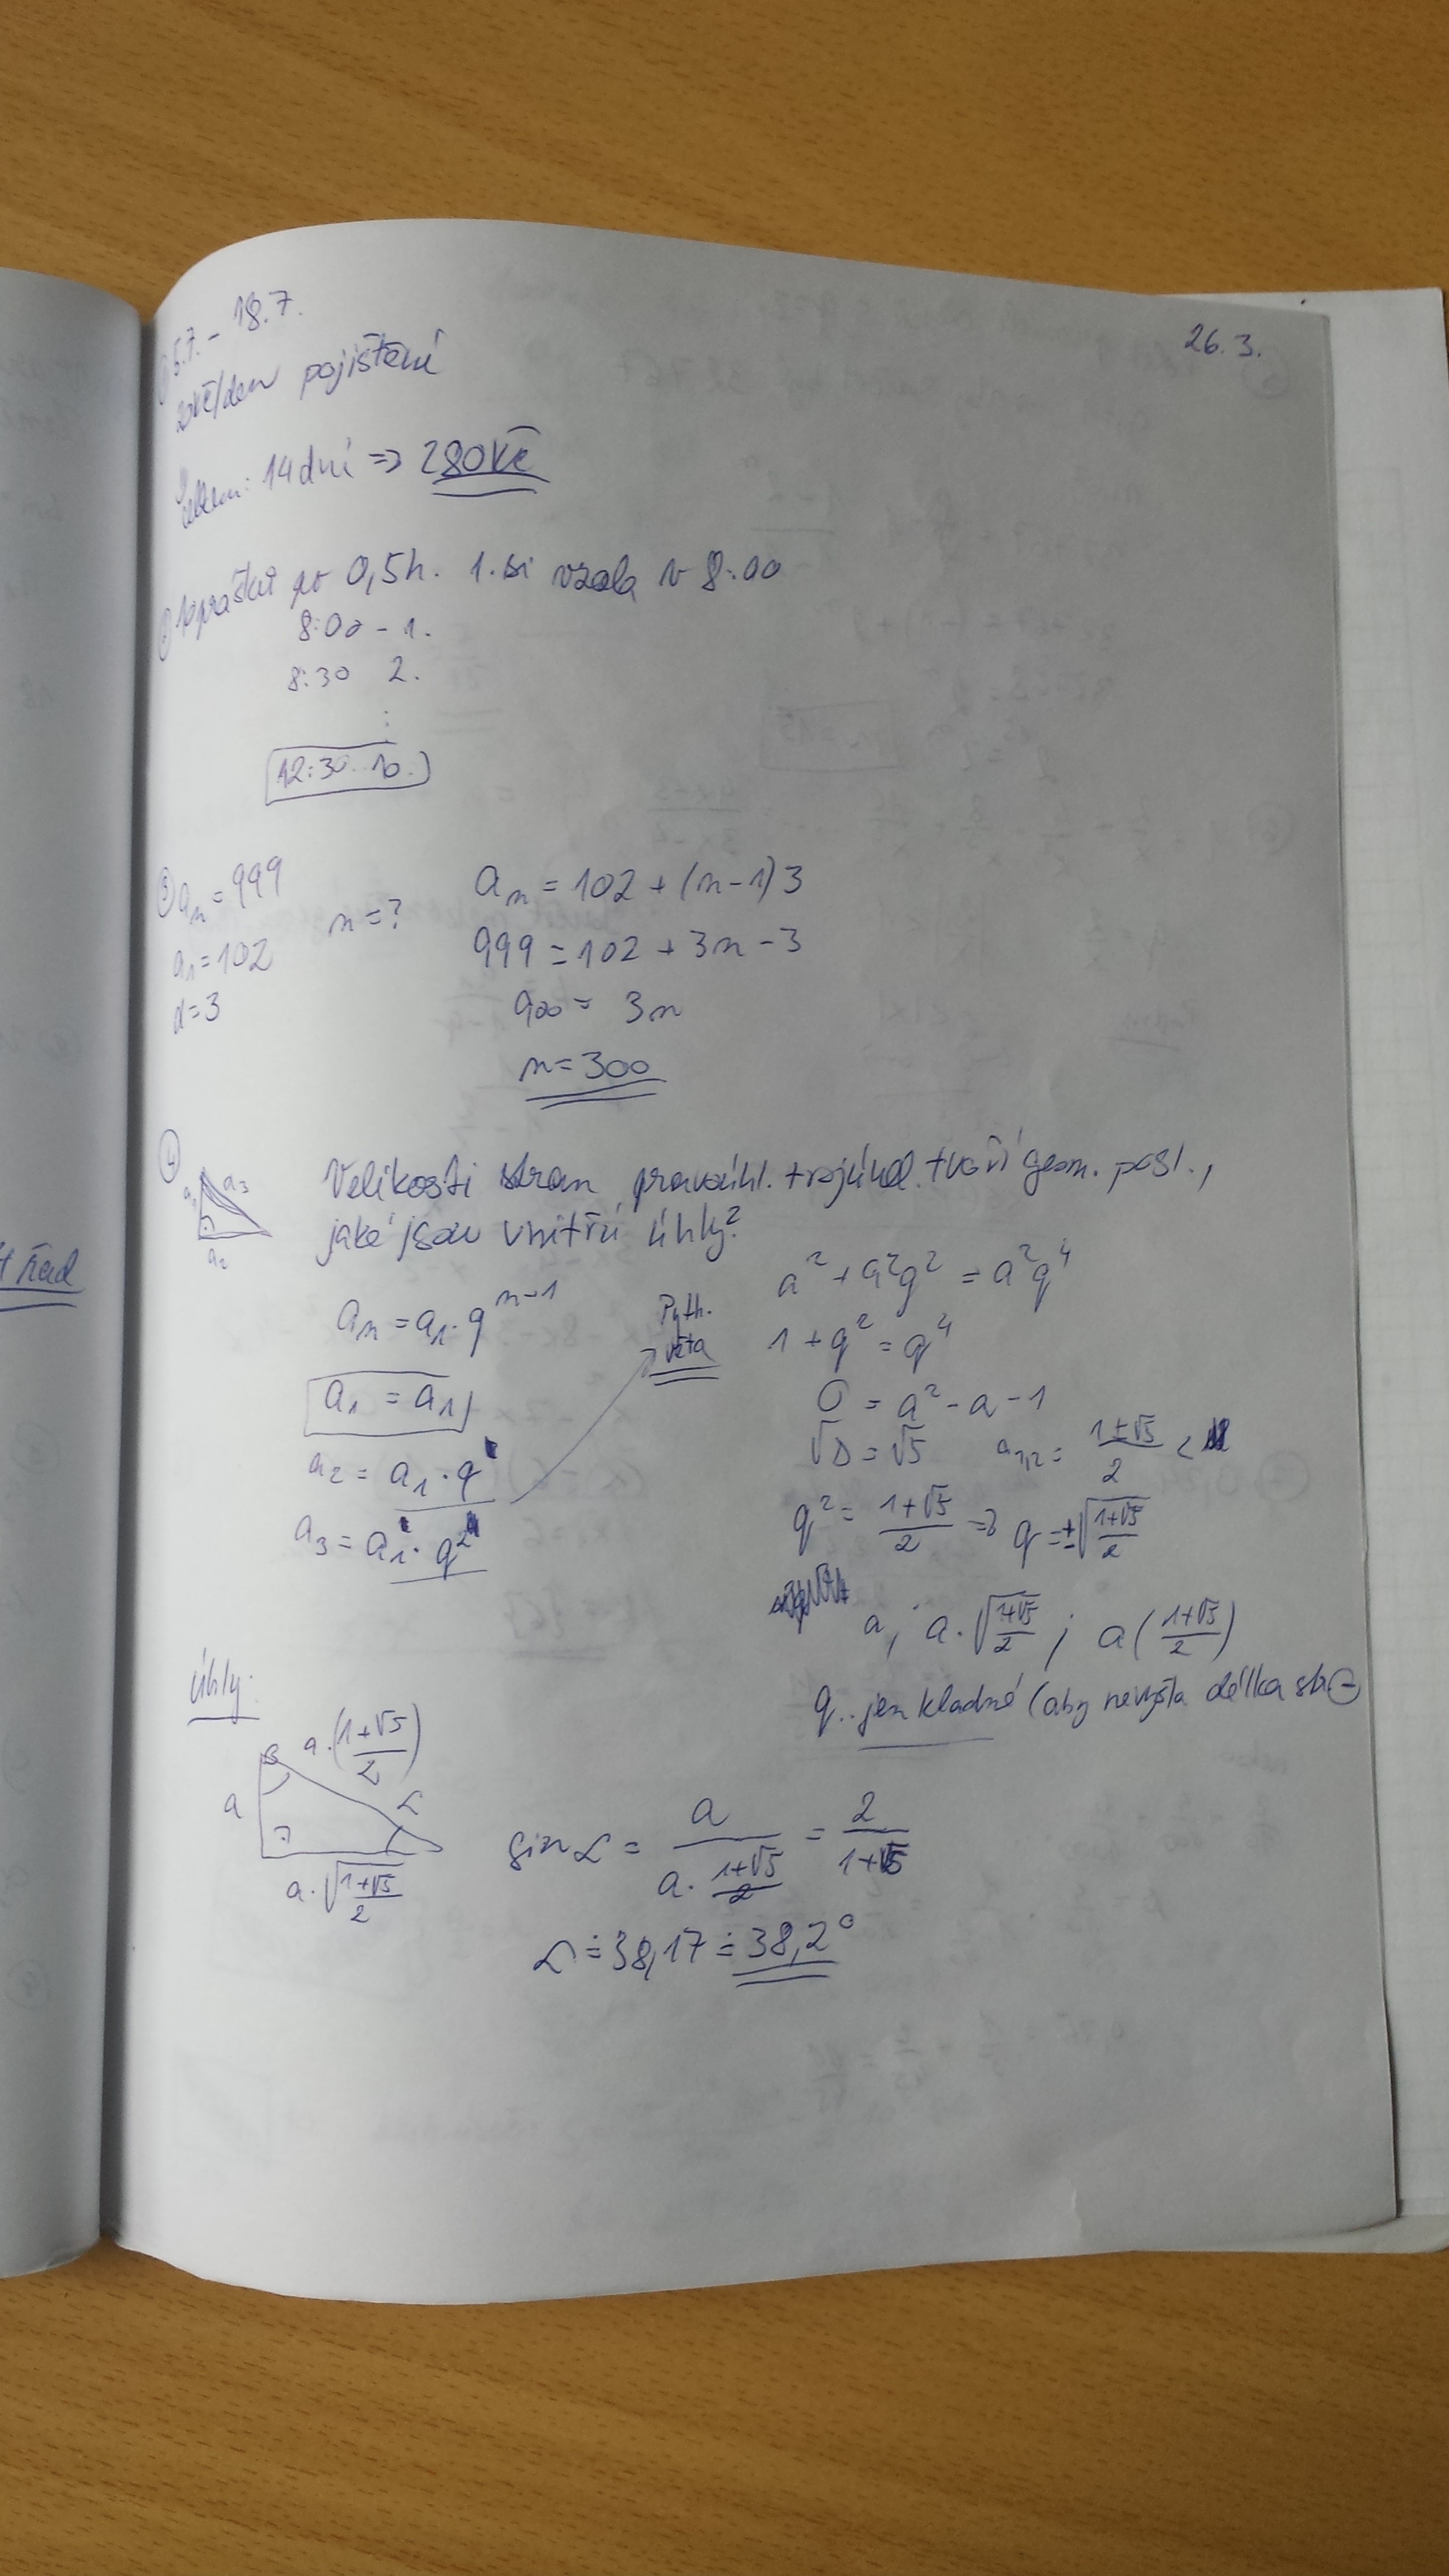 26.3.
5.7. - 18.7.
20Kč/den pojištění
Celkem: 14 dní => 280Kč
10 prášků po 0,5h. 1. si vzala v 8:00
8:00 - 1.
8:30 2.
:
12:30 .. 10.
③ aₙ = 999
a₁ = 102
d = 3
n = ?
aₙ = 102 + (n-1)3
999 = 102 + 3n - 3
900 = 3n
n = 300
④ a₁ a₃ a₂
Velikosti stran pravoúhl. trojúhel. tvoří geom. posl.,
jaké jsou vnitřní úhly?
aₙ = a₁ · qⁿ⁻¹
a₁ = a₁
a₂ = a₁ · q
a₃ = a₁ · q²
Pyth.
věta
a² + a²q² = a²q⁴
1 + q² = q⁴
0 = a² - a - 1
√D = √5 a₁,₂ = (1±√5)/2 <
q² = (1+√5)/2 => q = ±√((1+√5)/2)
a; a · √((1+√5)/2); a((1+√5)/2)
q .. jen kladné (aby nevyšla délka str ⊖
úhly:
β a · ((1+√5)/2)
a α
a · √((1+√5)/2)
sin α = a/(a · (1+√5)/2) = 2/(1+√5)
α ≐ 38,17 ≐ 38,2°
t řad